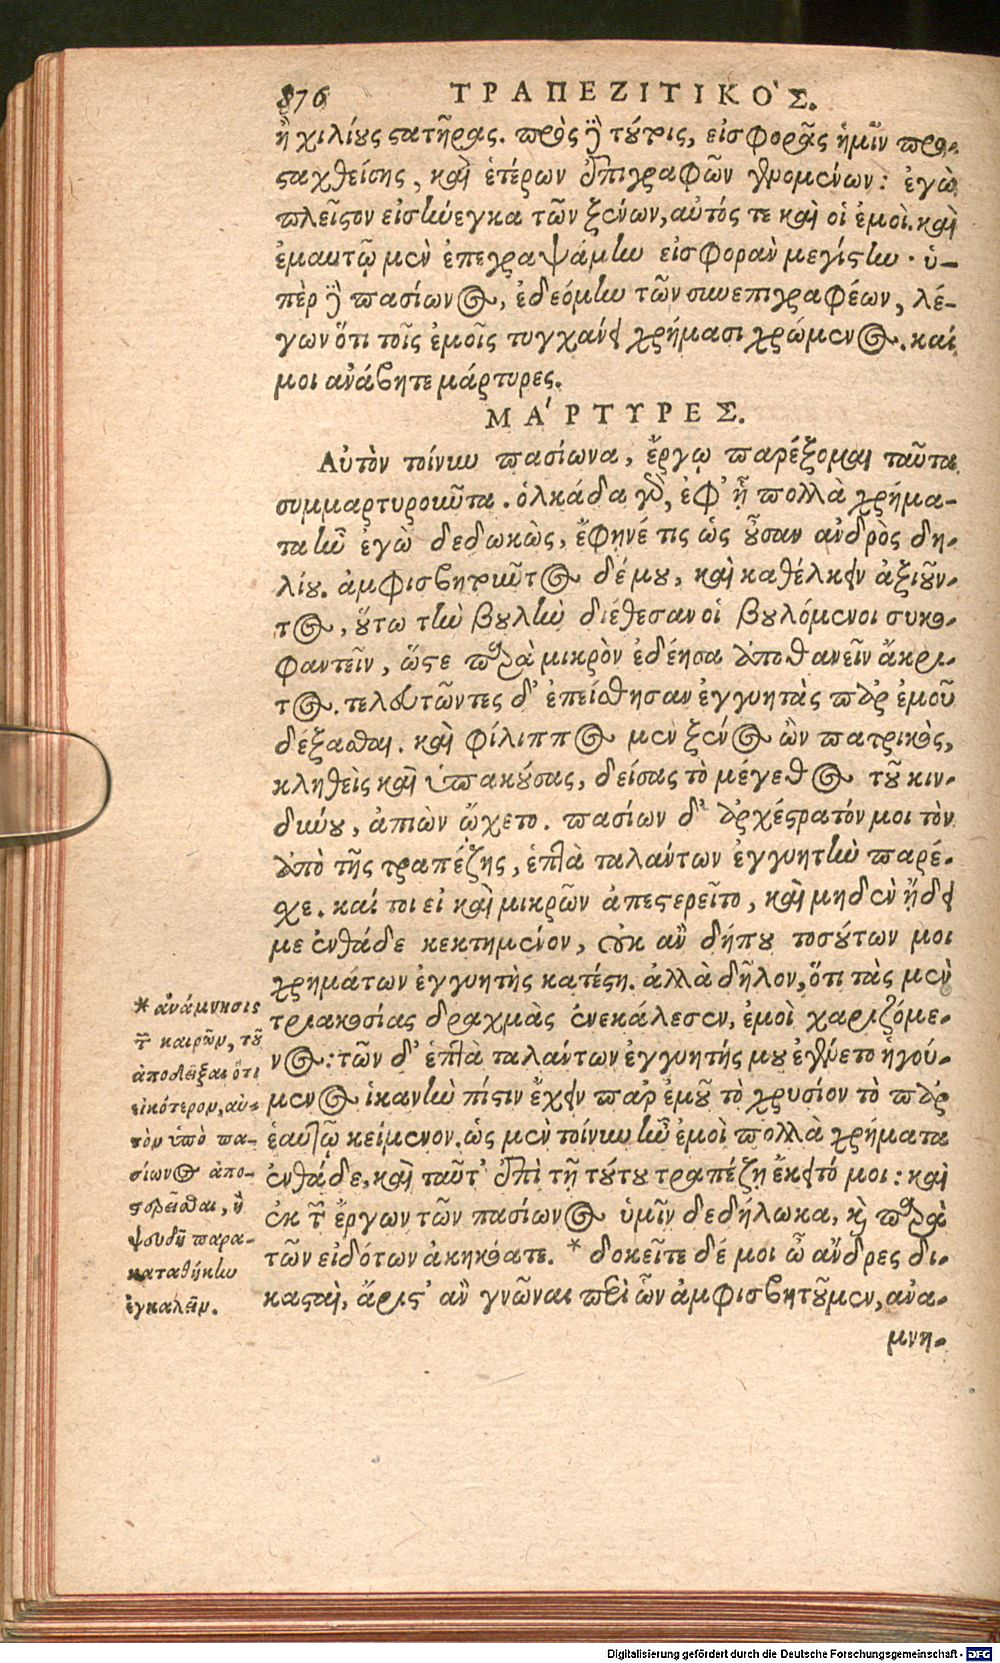 876 ΤΡΑΠΕΖΙΤΙΚΟ'Σ.
ἢ χιλίους στατῆρας. πρὸς δὲ τούτοις, εἰσφορᾶς ἡμῖν προσ-
ταχθείσης, καὶ ἑτέρων ἐπιγραφῶν γενομένων: ἐγὼ
πλεῖστον εἰσήνεγκα τῶν ξένων, αὐτός τε καὶ οἱ ἐμοὶ. καὶ
ἐμαυτῷ μὲν ἐπεγραψάμην εἰσφορὰν μεγίστην· ὑ-
πὲρ δὲ πασίωνος, ἐδεόμην τῶν συνεπιγραφέων, λέ-
γων ὅτι τοῖς ἐμοῖς τυγχάνει χρήμασι χρώμενος. καί
μοι ἀνάβητε μάρτυρες.
ΜΑ'ΡΤΥΡΕΣ.
Αὐτὸν τοίνυν πασίωνα, ἔργῳ παρέξομαι ταῦτα
συμμαρτυροῦντα. ὁλκάδα γὸ, ἐφ' ᾗ πολλὰ χρήμα-
τα ἦν ἐγὼ δεδωκὼς, ἔφηνέ τις ὡς οὖσαν ἀνδρὸς δη-
λίου. ἀμφισβητοῦντος δέ μου, καὶ καθέλκειν ἀξιοῦν-
τος, οὕτω τὴν βουλὴν διέθεσαν οἱ βουλόμενοι συκο-
φαντεῖν, ὥστε παρὰ μικρὸν ἐδέησα ἀποθανεῖν ἄκρι-
τος. τελευτῶντες δ' ἐπείσθησαν ἐγγυητὰς παρ ἐμοῦ
δέξασθαι. καὶ φίλιππος μὲν ξένος ὢν πατρικὸς,
κληθεὶς καὶ ὑπακούσας, δείσας τὸ μέγεθος τοῦ κιν-
δύνου, ἀπιὼν ᾤχετο. πασίων δ' ἀρχέστρατόν μοι τὸν
ἀπὸ τῆς τραπέζης, ἑπτὰ ταλάντων ἐγγυητὴν παρέ-
χε. καί τοι εἰ καὶ μικρῶν ἀπεστερεῖτο, καὶ μηδὲν ᾔδει
με ἐνθάδε κεκτημένον, οὐκ ἂν δήπου τοσούτων μοι
χρημάτων ἐγγυητὴς κατέστη. ἀλλὰ δῆλον, ὅτι τὰς μὲν
τριακοσίας δραχμὰς ἐνεκάλεσεν, ἐμοὶ χαριζόμε-
νος: τῶν δ' ἑπτὰ ταλάντων ἐγγυητής μου ἐγένετο ἡγού-
μενος ἱκανὴν πίστιν ἔχειν παρ ἐμοῦ τὸ χρυσίον τὸ παρ
ἑαυτῷ κείμενον. ὡς μὲν τοίνυν ἦν ἐμοὶ πολλὰ χρήματα
ἐνθάδε, καὶ ταῦτ' ἐπὶ τῇ τούτου τραπέζῃ ἔκειτό μοι: καὶ
ἐκ τῶν ἔργων τῶν πασίωνος ὑμῖν δεδήλωκα, καὶ παρὰ
τῶν εἰδότων ἀκηκόατε. * δοκεῖτε δέ μοι ὦ ἄνδρες δι-
κασταὶ, ἄριστ' ἂν γνῶναι περὶ ὧν ἀμφισβητοῦμεν, ἀνα-
μνη-
* ἀνάμνησις
τῶν καιρῶν, τοῦ
ἀποδεῖξαι ὅτι
εἰκότερον, αὐ-
τὸν ὑπὸ πα-
σίωνος ἀπο-
στερεῖσθαι, ἢ
ψευδῆ παρα-
καταθήκην
ἐγκαλεῖν.
Digitalisierung gefördert durch die Deutsche Forschungsgemeinschaft - DFG